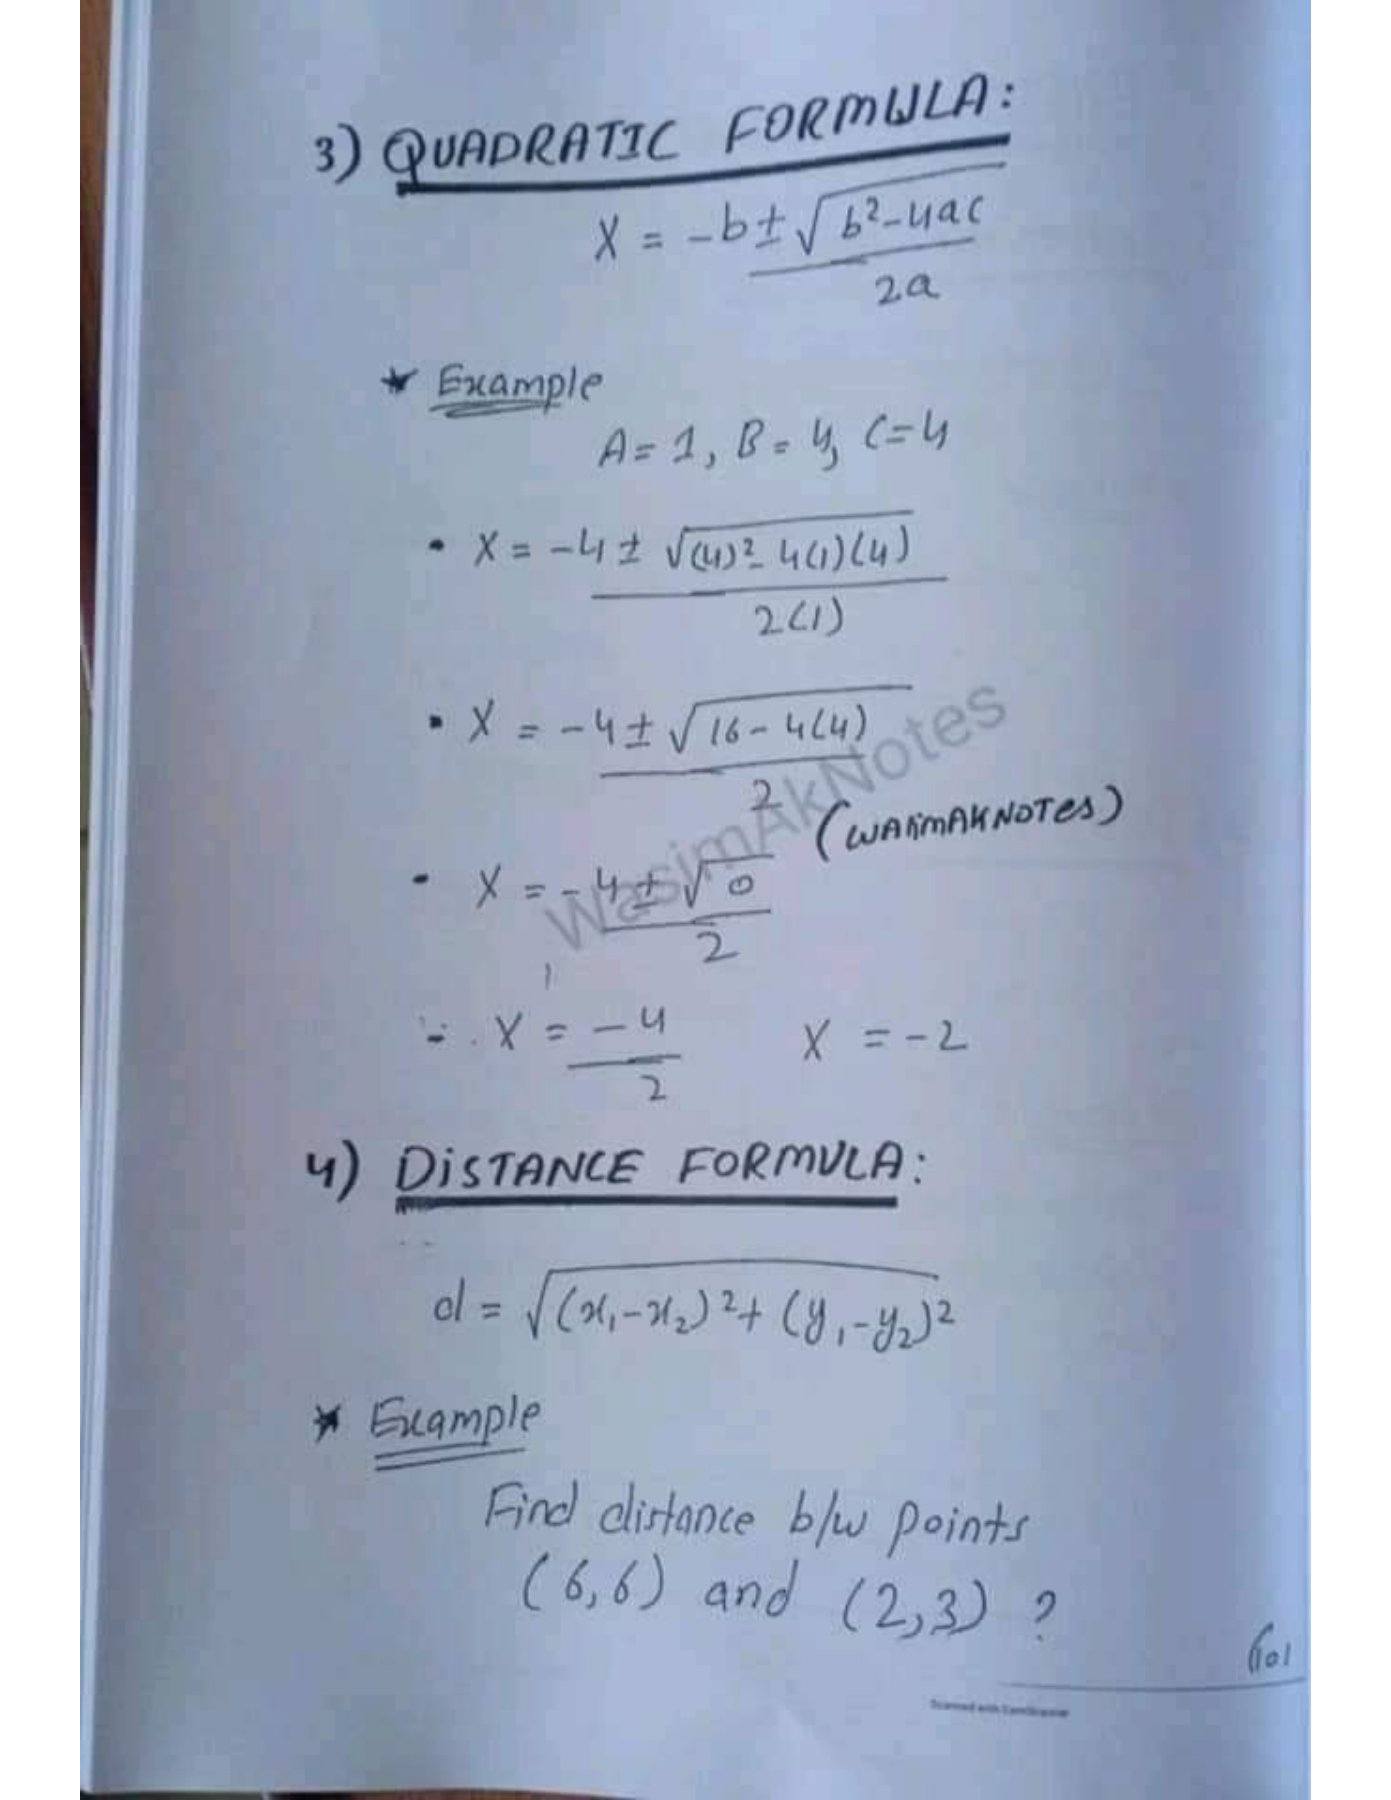 3) QUADRATIC FORMULA:
X = -b ± √b²-4ac
2a
* Example
A = 1, B = 4, C = 4
• X = -4 ± √(4)² - 4(1)(4)
2(1)
• X = -4 ± √16 - 4(4)
2
(WASIMAKNOTES)
WasimAkNotes
- X = -4 ± √0
2
- X = -4 X = -2
2
4) DiSTANCE FORMULA:
d = √(x₁-x₂)² + (y₁-y₂)²
* Example
Find distance b/w points
(6,6) and (2,3) ?
101
Scanned with CamScanner